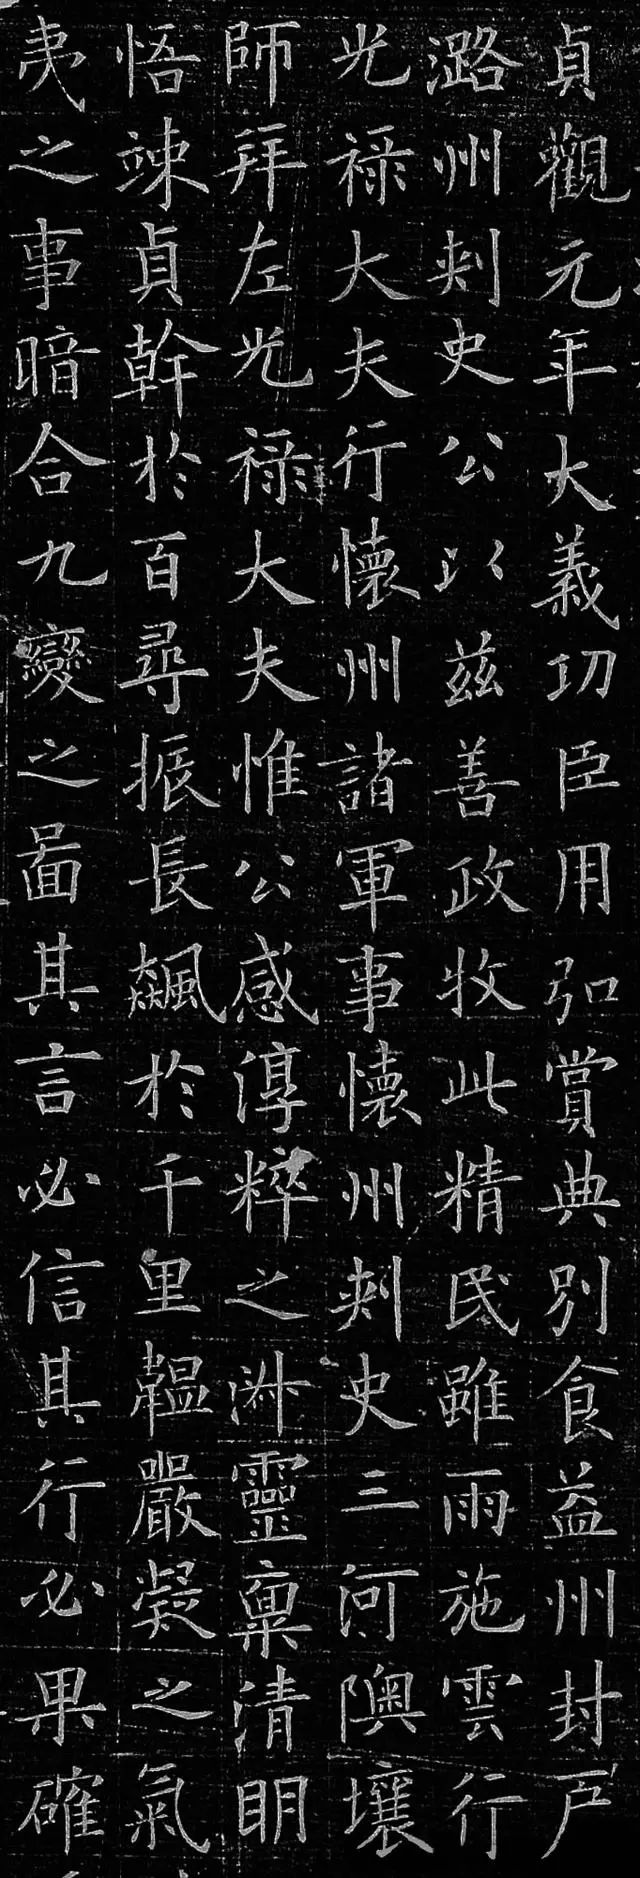 貞觀元年大義功臣用弘賞典別食益州封戶
潞州刺史公以茲善政牧此精民雖雨施雲行
光祿大夫行懷州諸軍事懷州刺史三河隩壤
師拜左光祿大夫惟公感淳粹之淑靈稟清明
悟竦貞幹於百尋振長飆於千里韞嚴凝之氣
夷之事暗合九變之圖其言必信其行必果確